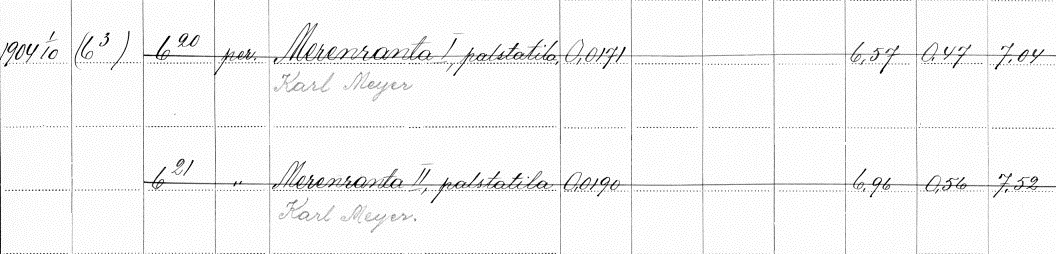 1904 1/10 (6³) 6²⁰ per. Merenranta I, palstatila, 0,0171 6,57 0,47 7,04
Karl Meyer
6²¹ " Merenranta II, palstatila 0,0190 6,96 0,56 7,52
Karl Meyer.